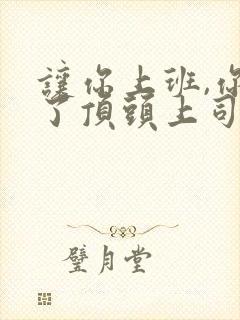 讓你上班,你
了頂頭上司
璧月堂